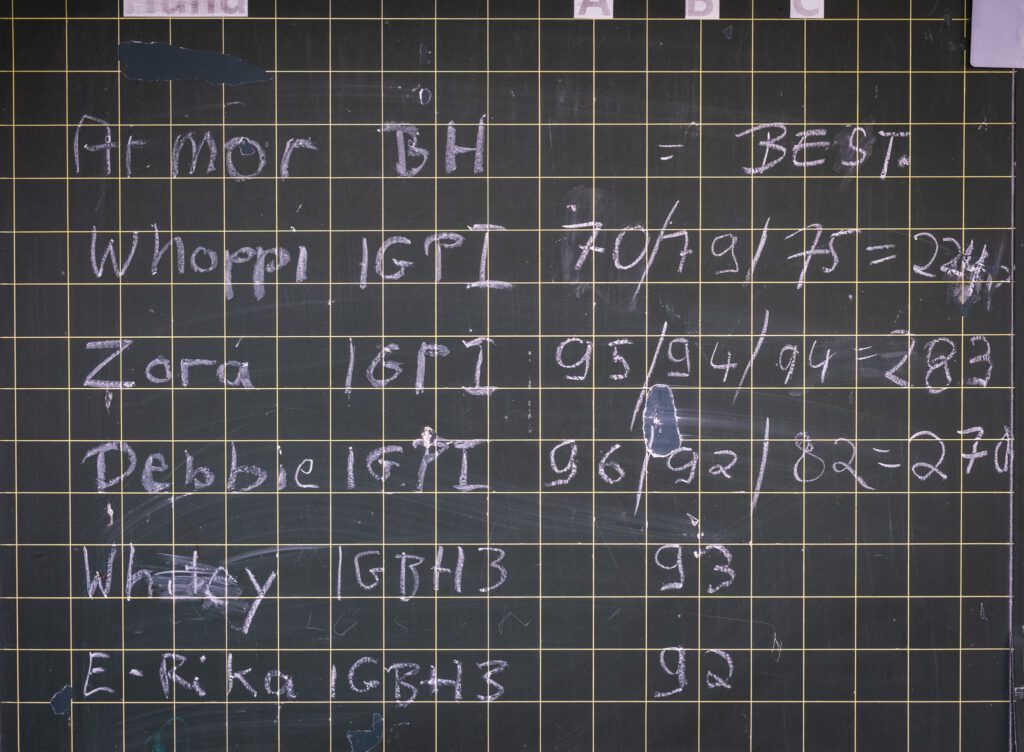 Hund A B C
Armor BH = BEST.
Whoppi IGPI 70/79/75 = 224
Zora IGPI 95/94/94 = 283
Debbie IGPI 96/92/82 = 270
Whitey IGBH3 93
E-Rika IGBH3 92